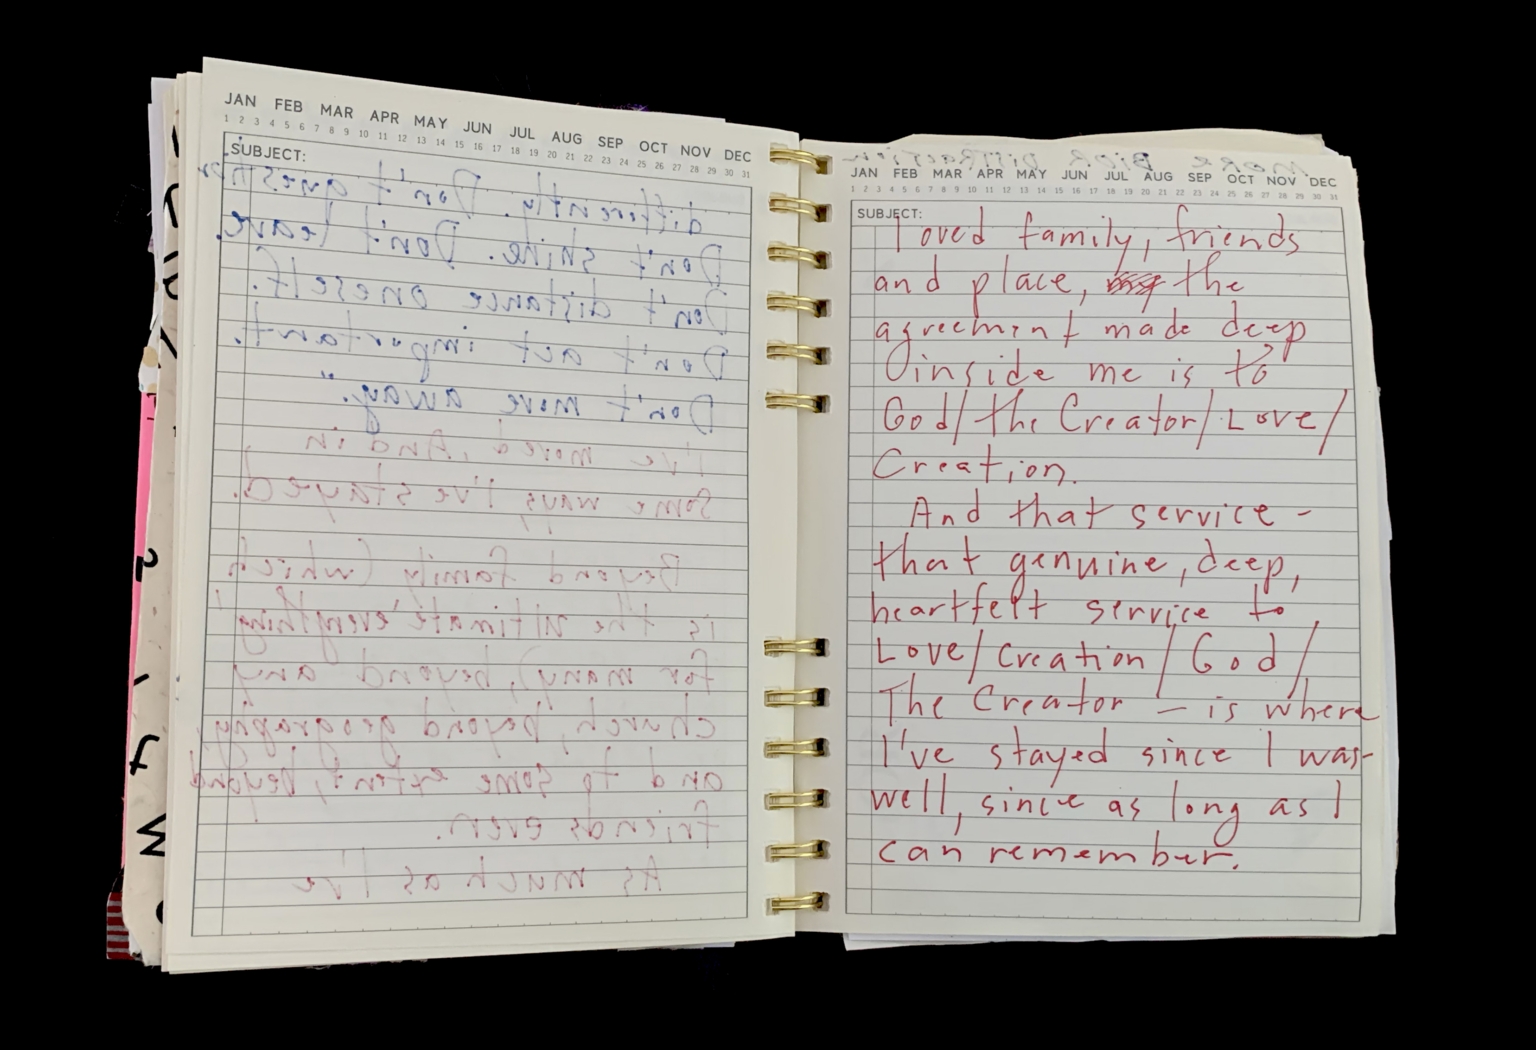 JAN FEB MAR APR MAY JUN JUL AUG SEP OCT NOV DEC
1 2 3 4 5 6 7 8 9 10 11 12 13 14 15 16 17 18 19 20 21 22 23 24 25 26 27 28 29 30 31
SUBJECT:
differently. Don't question.
Don't shine. Don't leave.
Don't distance oneself.
Don't act important.
Don't move away."
I've moved, And in
some ways, I've stayed.
Beyond family (which
is the ultimate 'everything'
for many), beyond any
church, beyond geography,
and to some extent, beyond
friends even.
As much as I've
MORE
JAN FEB MAR APR MAY JUN JUL AUG SEP OCT NOV DEC
1 2 3 4 5 6 7 8 9 10 11 12 13 14 15 16 17 18 19 20 21 22 23 24 25 26 27 28 29 30 31
SUBJECT:
loved family, friends
and place, the
agreement made deep
inside me is to
God/the Creator/Love/
Creation.
And that service -
that genuine, deep,
heartfelt service to
Love/Creation/God/
The Creator - is where
I've stayed since I was-
well, since as long as I
can remember.